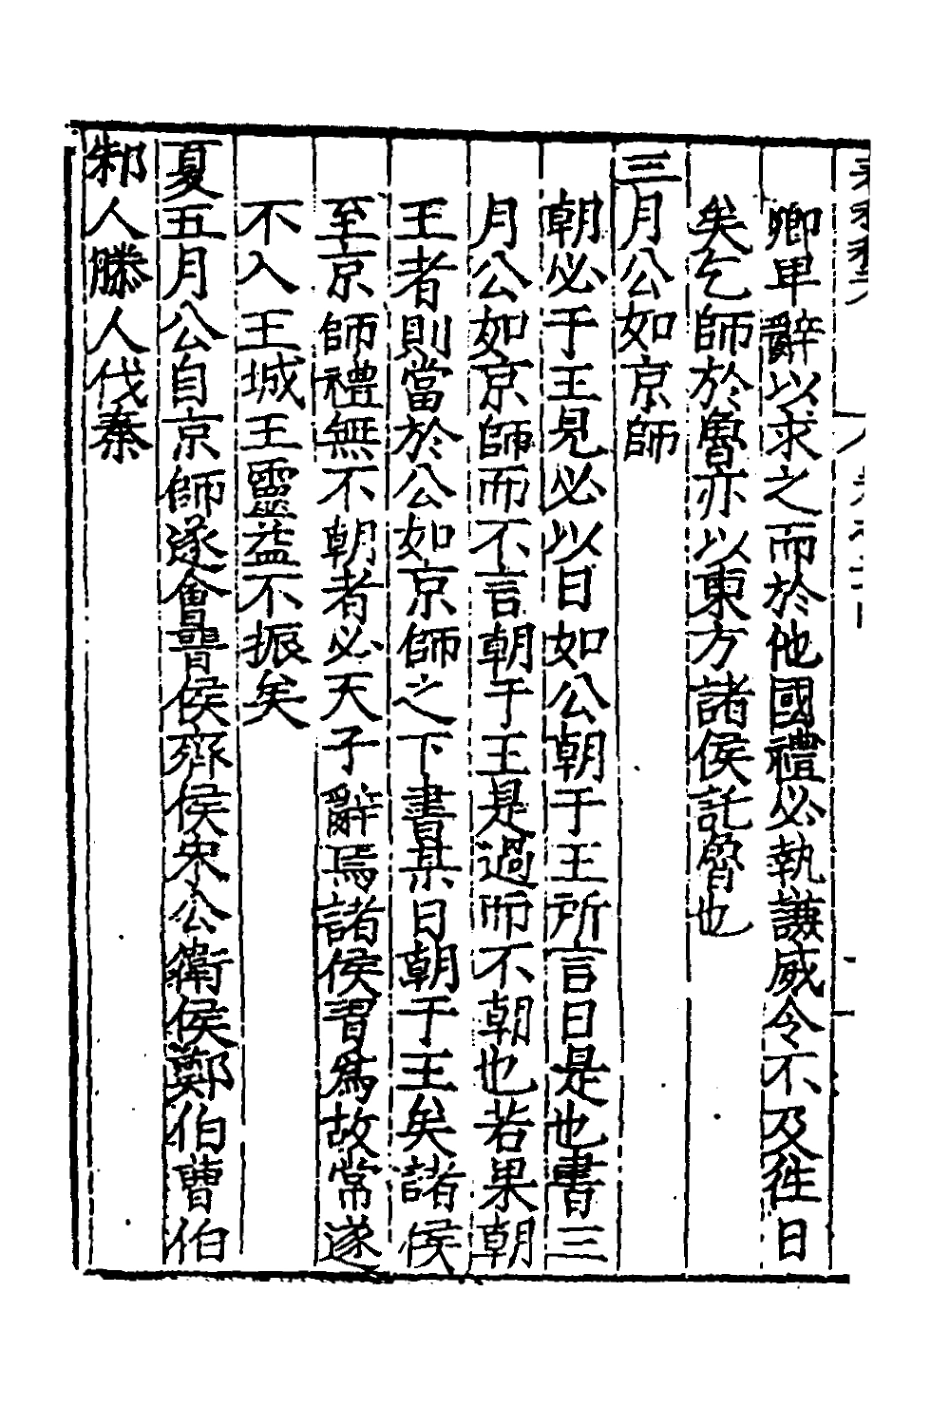 卿卑辭以求之而於他國禮必執謙威令不及徃日
矣乞師於魯亦以東方諸侯託魯也
三月公如京師
朝必于王見必以日如公朝于王所言日是也書三
月公如京師而不言朝于王是過而不朝也若果朝
王者則當於公如京師之下書某日朝于王矣諸侯
至京師禮無不朝者必天子辭焉諸侯習爲故常遂
不入王城王靈益不振矣
夏五月公自京師遂會晋侯齊侯宋公衛侯鄭伯曹伯
邾人滕人伐秦